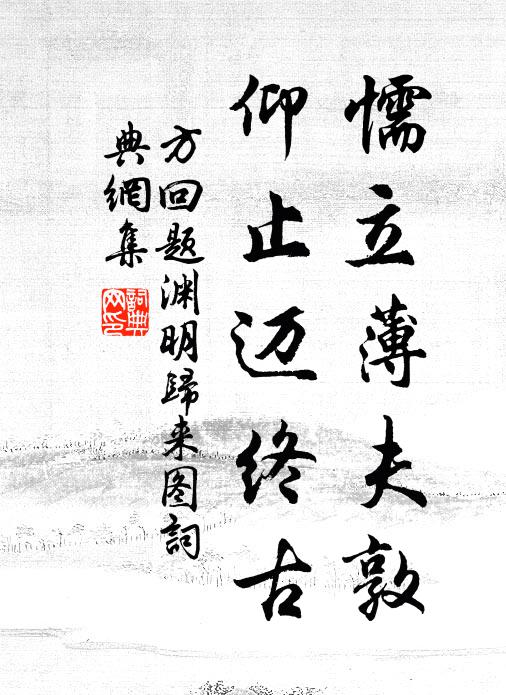 懦立薄夫敦
仰止迈终古
方回题渊明归来图詞
典網集
詞典网印